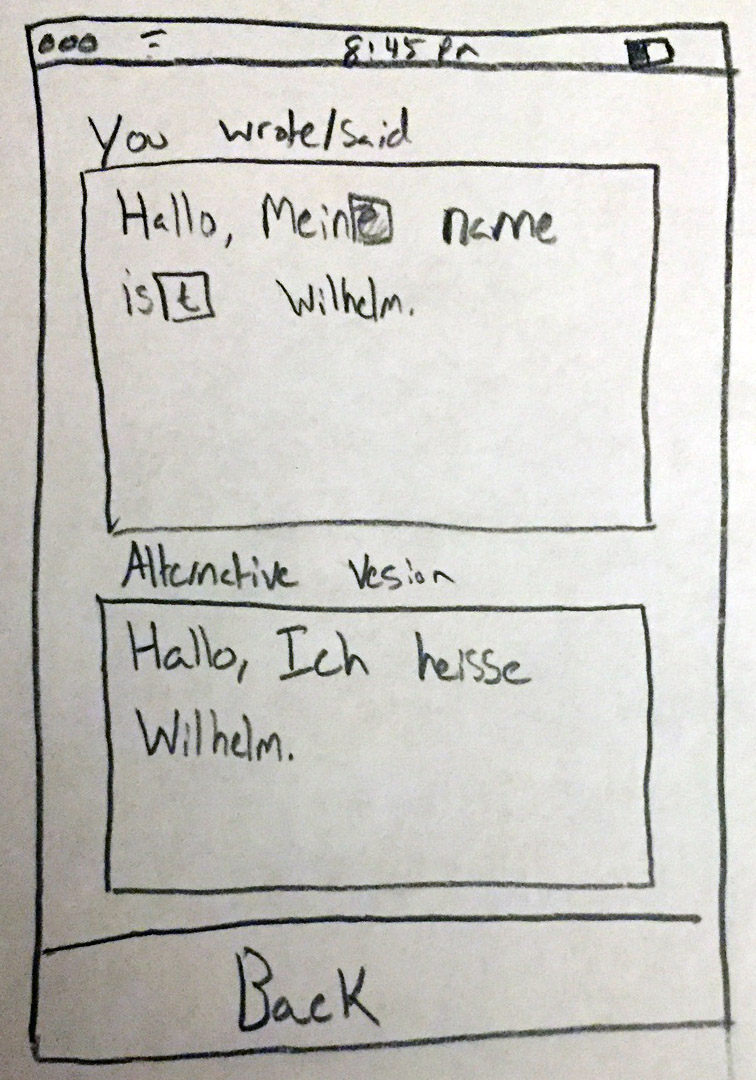 8:45 pm
You wrote/said
Hallo, Meine name
ist Wilhelm.
Alternative Vesion
Hallo, Ich heisse
Wilhelm.
Back